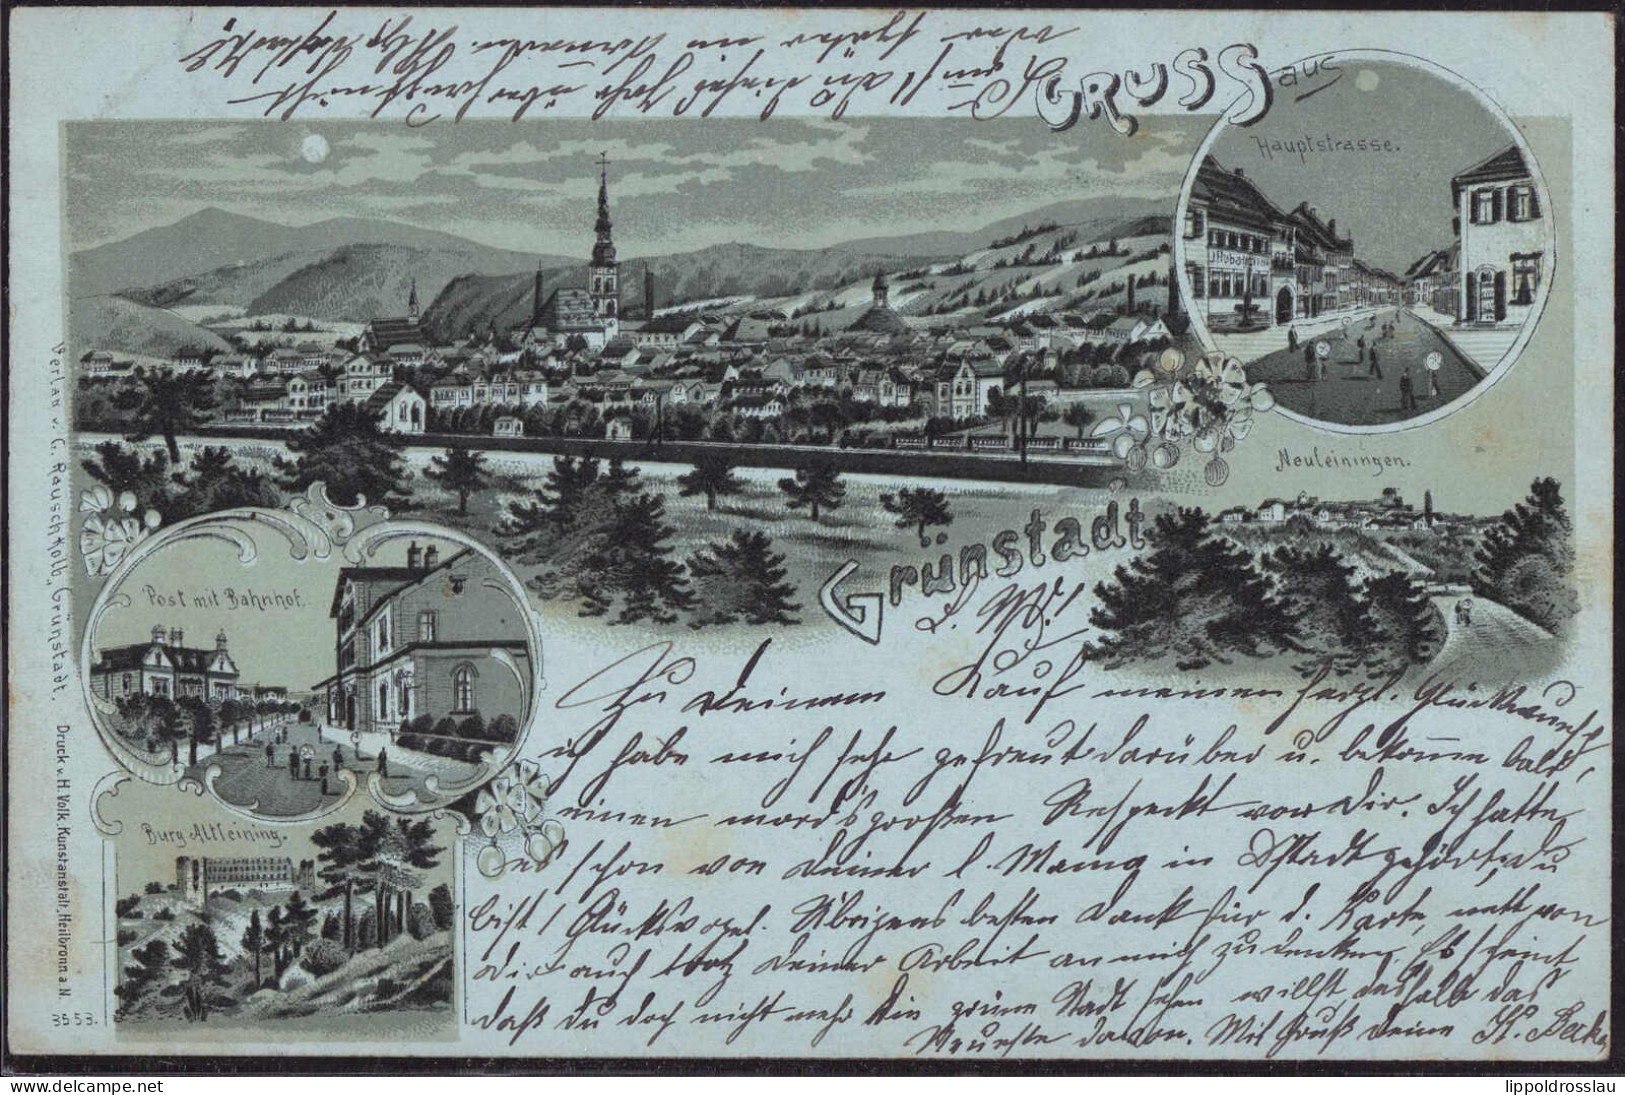 GRUSS aus
Hauptstrasse.
Neuleiningen.
Grünstadt
Post mit Bahnhof.
Burg Altleining.
Verlag v. G. Rauschkolb, Grünstadt.
Druck v. H. Volk. Kunstanstalt, Heilbronn a. N.
3553.
Zu Deinem Kauf meinen herzl. Glückwunsch
ich habe mich sehr gefreut darüber u. bekomme bald
einen mords großen Respeckt vor Dir. Ich hatte
es schon von Deiner l. Mama in Dstadt gehört, Du
bist 1 Glücksvogel. Übrigens besten Dank für d. Karte, nett von
Dir auch trotz Deiner Arbeit an mich zu denken. Es scheint
daß Du doch nicht mehr die grüne Stadt sehen willst, deshalb das
Neueste davon. Mit Gruß Deine H. Beck
Du dieses Jahr überhaupt nicht
oder später
lippoldrosslau